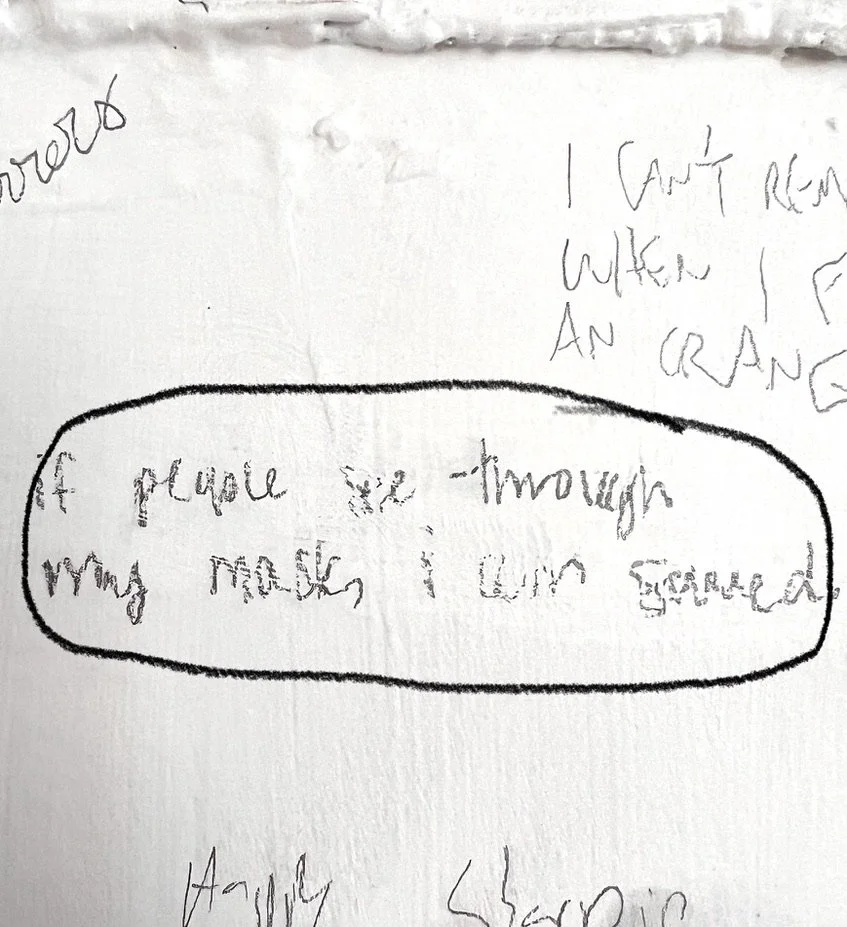 I CAN'T REM
WHEN I F
AN ORANG
if people see through
my mask, i am
Happy